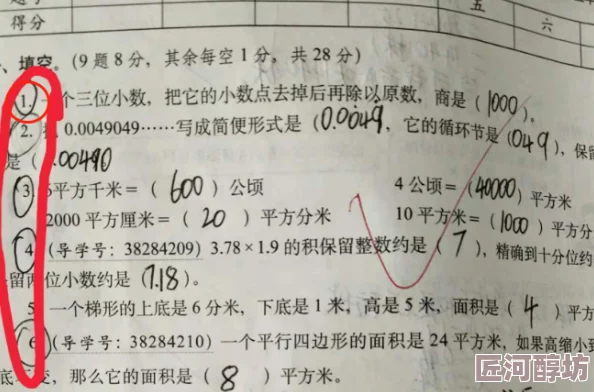 五
六
得分
、填空。(9题8分，其余每空1分，共28分)
1. 一个三位小数，把它的小数点去掉后再除以原数，商是(1000)。
2. 0.0049049……写成简便形式是(0.0049，它的循环节是(049)，保留
是(.00490
3. 6平方千米=(600)公顷 4公顷=(40000)平方米
2000平方厘米=(20)平方分米 10平方米=(1000)平方分
4. (导学号：38284209) 3.78×1.9的积保留整数约是(7)，精确到十分位约
留两位小数约是(7.18)。
5 一个梯形的上底是6分米，下底是1米，高是5米，面积是(4)平方
6 (导学号：38284210) 一个平行四边形的面积是24平方米，如果高缩小到
底不变，那么它的面积是(8)平方米。
匠河醇坊